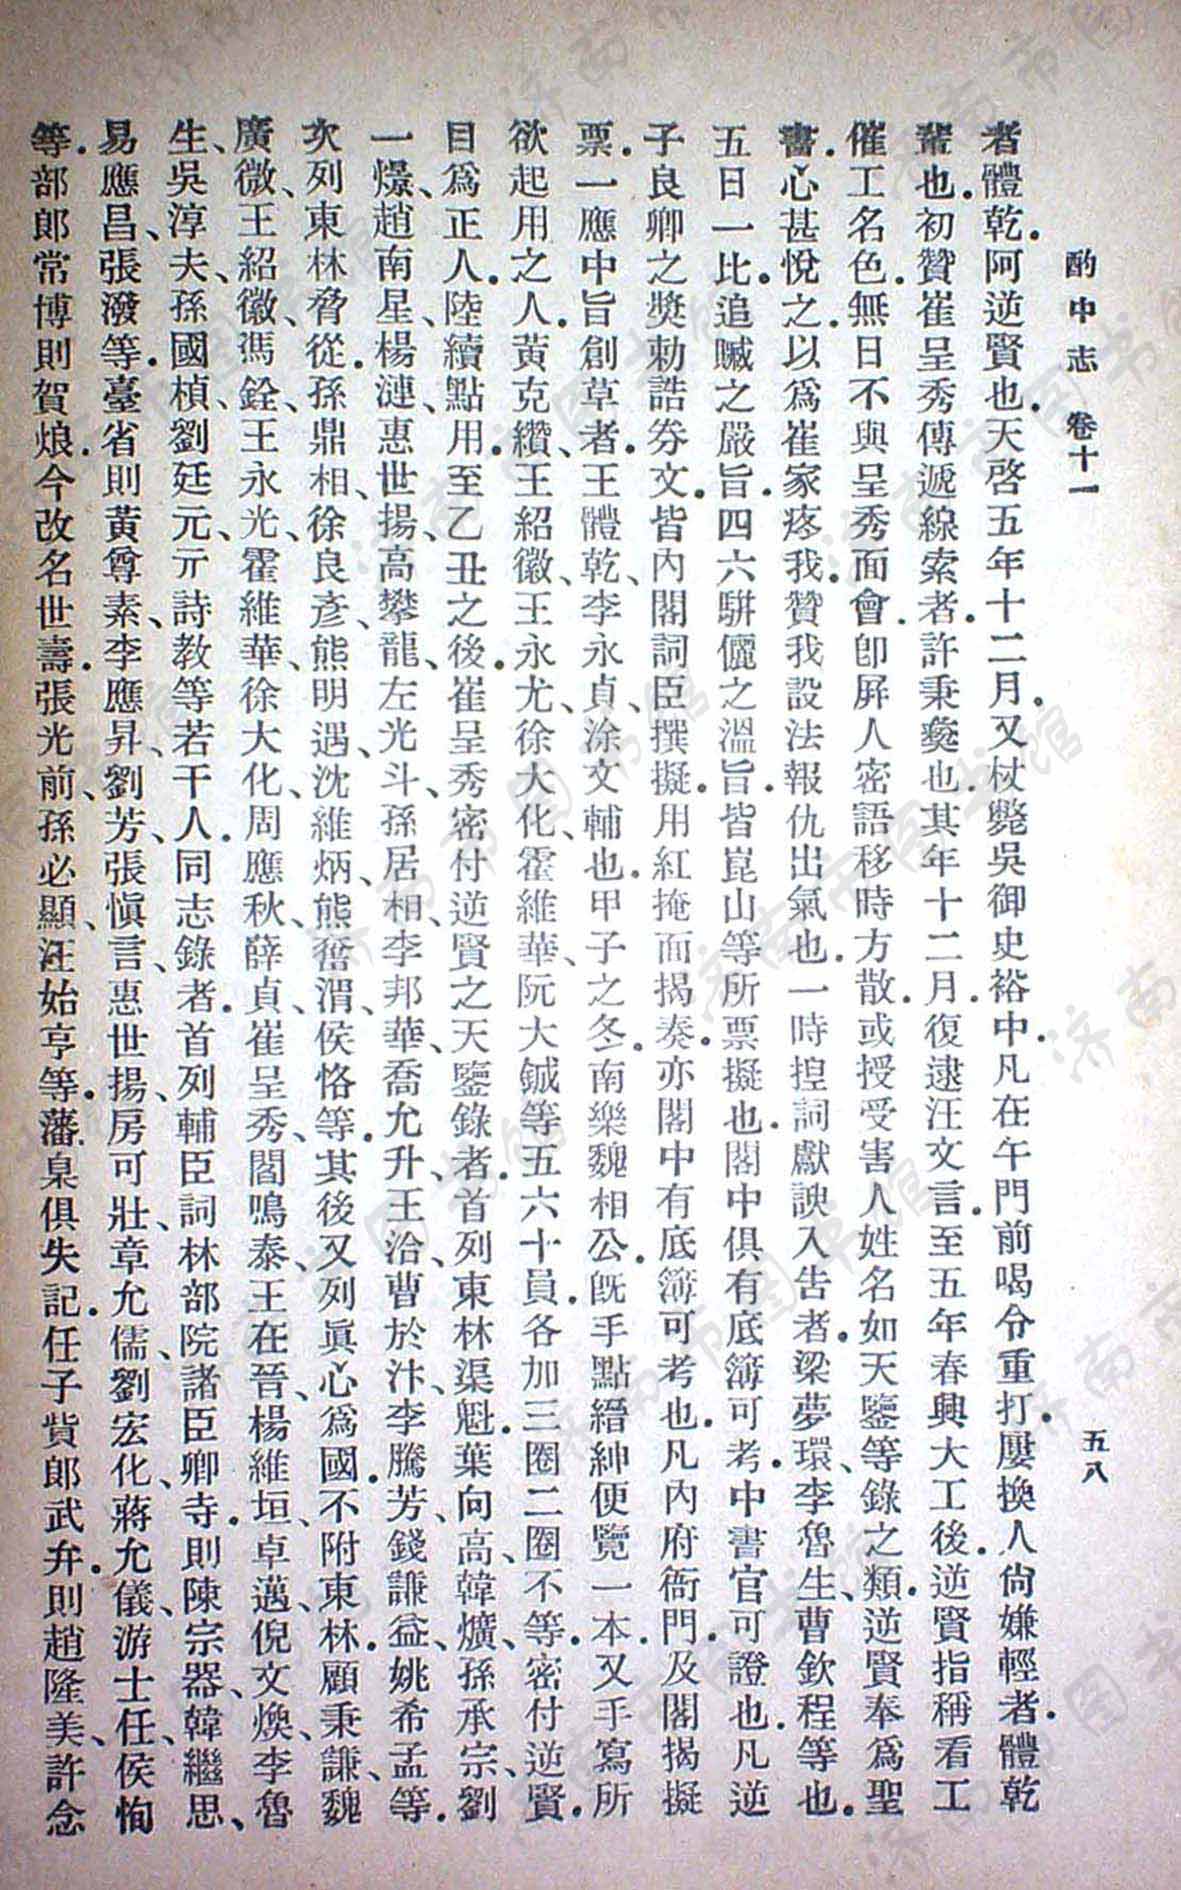 酌中志 卷十一 五八
者體乾.阿逆賢也.天啓五年十二月.又杖斃吳御史裕中.凡在午門前喝令重打.屢換人尙嫌輕者.體乾
輩也.初贊崔呈秀傳遞線索者.許秉彝也.其年十二月.復逮汪文言.至五年春興大工後.逆賢指稱看工
催工名色.無日不與呈秀面會.卽屏人密語移時方散.或授受害人姓名如天鑒等錄之類.逆賢奉爲聖
書.心甚悅之.以爲崔家疼我.贊我設法報仇出氣也.一時捏詞獻諛入告者.梁夢環、李魯生、曹欽程等也.
五日一比.追贓之嚴旨.四六駢儷之溫旨.皆崑山等所票擬也.閣中俱有底簿可考.中書官可證也.凡逆
子良卿之獎勅誥券文.皆內閣詞臣撰擬.用紅掩面揭奏.亦閣中有底簿可考也.凡內府衙門.及閣揭擬
票.一應中旨創草者.王體乾、李永貞、涂文輔也.甲子之冬.南樂魏相公.旣手點縉紳便覽一本.又手寫所
欲起用之人.黃克纘、王紹徽、王永尤、徐大化、霍維華、阮大鋮等五六十員.各加三圈二圈不等.密付逆賢.
目爲正人.陸續點用.至乙丑之後.崔呈秀密付逆賢之天鑒錄者.首列東林渠魁.葉向高、韓爌、孫承宗、劉
一燝、趙南星、楊漣、惠世揚、高攀龍、左光斗、孫居相、李邦華、喬允升、王洽、曹於汴、李騰芳、錢謙益、姚希孟等.
次列東林脅從.孫鼎相、徐良彥、熊明遇、沈維炳、熊奮渭、侯恪等.其後又列眞心爲國.不附東林.顧秉謙、魏
廣微、王紹徽、馮銓、王永光、霍維華、徐大化、周應秋、薛貞、崔呈秀、閻鳴泰、王在晉、楊維垣、卓邁、倪文煥、李魯
生、吳淳夫、孫國楨、劉廷元、亓詩教等若干人.同志錄者.首列輔臣詞林部院諸臣卿寺.則陳宗器、韓繼思、
易應昌、張潑等.臺省則黃尊素、李應昇、劉芳、張愼言、惠世揚、房可壯、章允儒、劉宏化、蔣允儀、游士任、侯恂
等.部郎常博則賀烺.今改名世壽.張光前、孫必顯、汪始亨等.藩臬俱失記.任子貲郎武弁.則趙隆美、許念